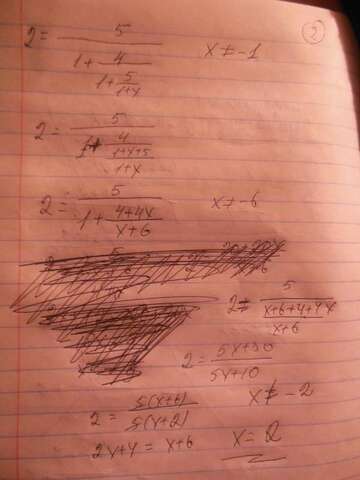 2
2 = 5 / (1 + 4 / (1 + 5 / (1+x)))   x ≠ -1
2 = 5 / (1 + 4 / ((1+x+5) / (1+x)))
2 = 5 / (1 + (4+4x) / (x+6))   x ≠ -6
2 = 5 / ((x+6+4+4x) / (x+6))
2 = (5x+30) / (5x+10)
x ≠ -2
2 = 5(x+6) / 5(x+2)
2x+4 = x+6   x = 2